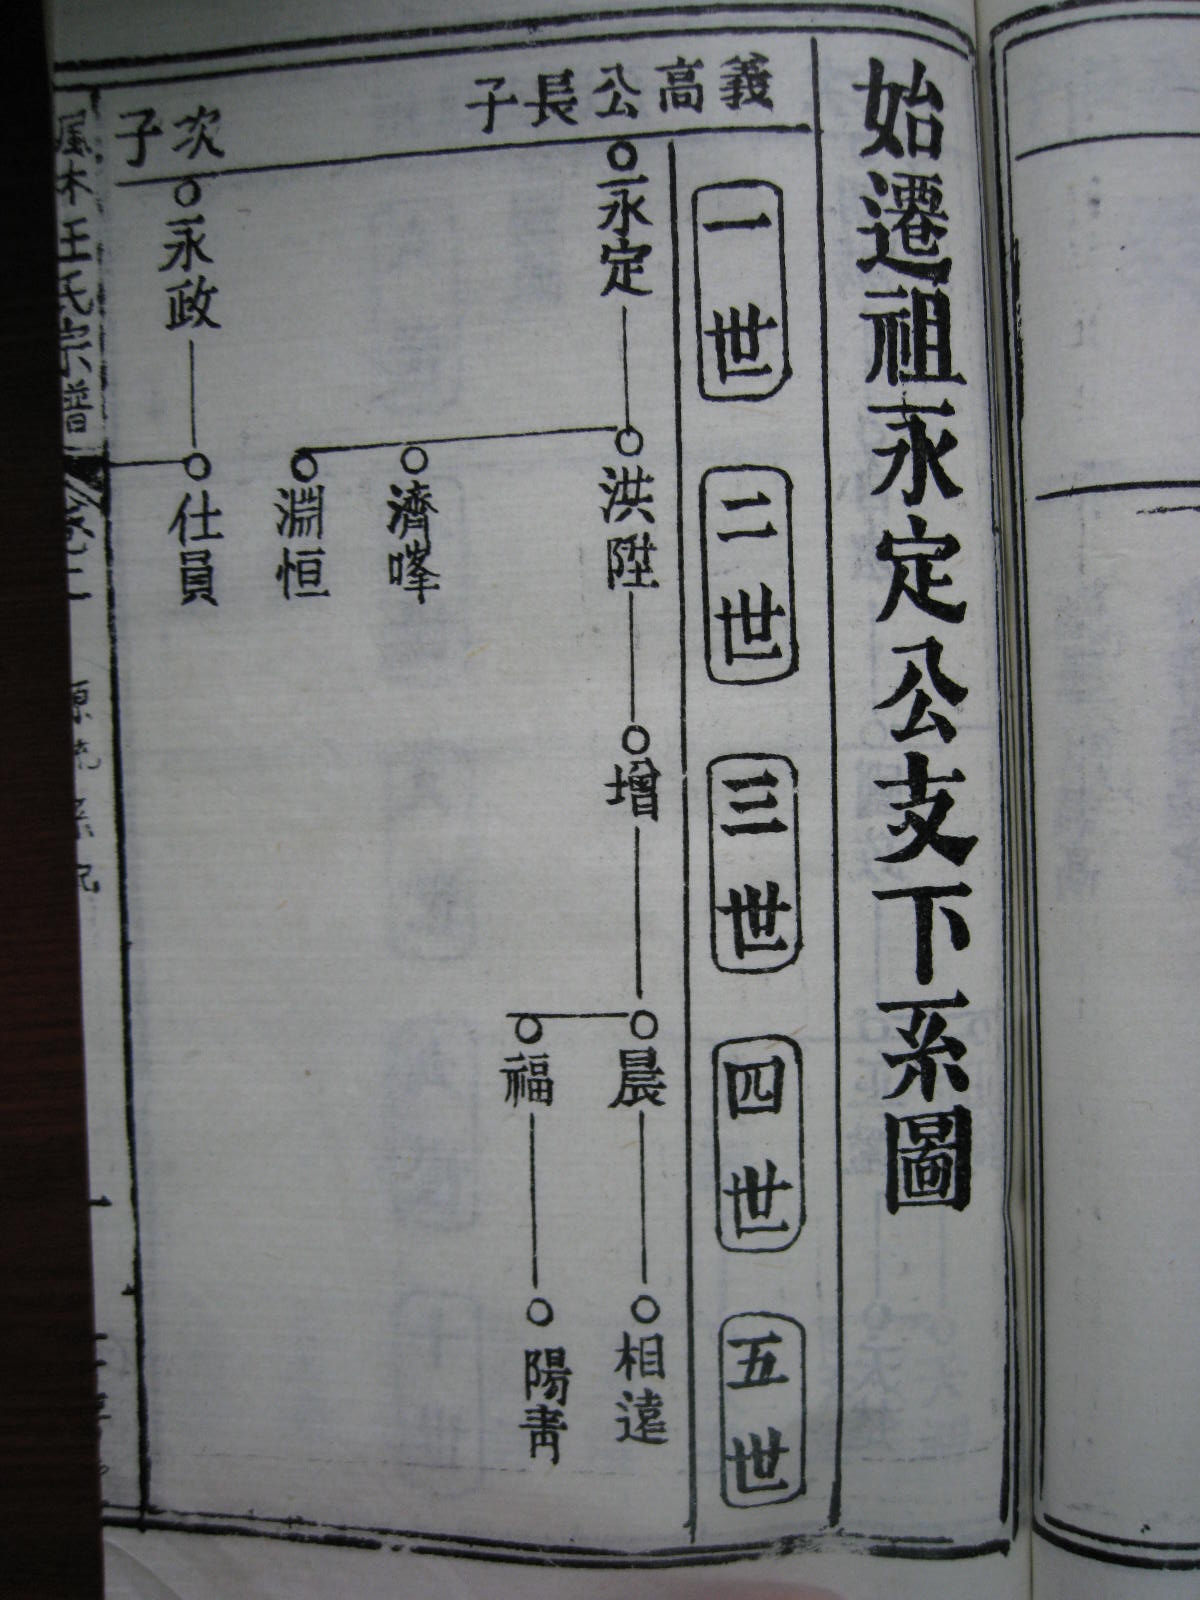 始遷祖永定公支下系圖
一世
二世
三世
四世
五世
義高公長子
永定
洪陞
增
晨
相遠
福
陽青
濟峰
淵恒
次子
永政
仕員
王氏宗譜
卷二